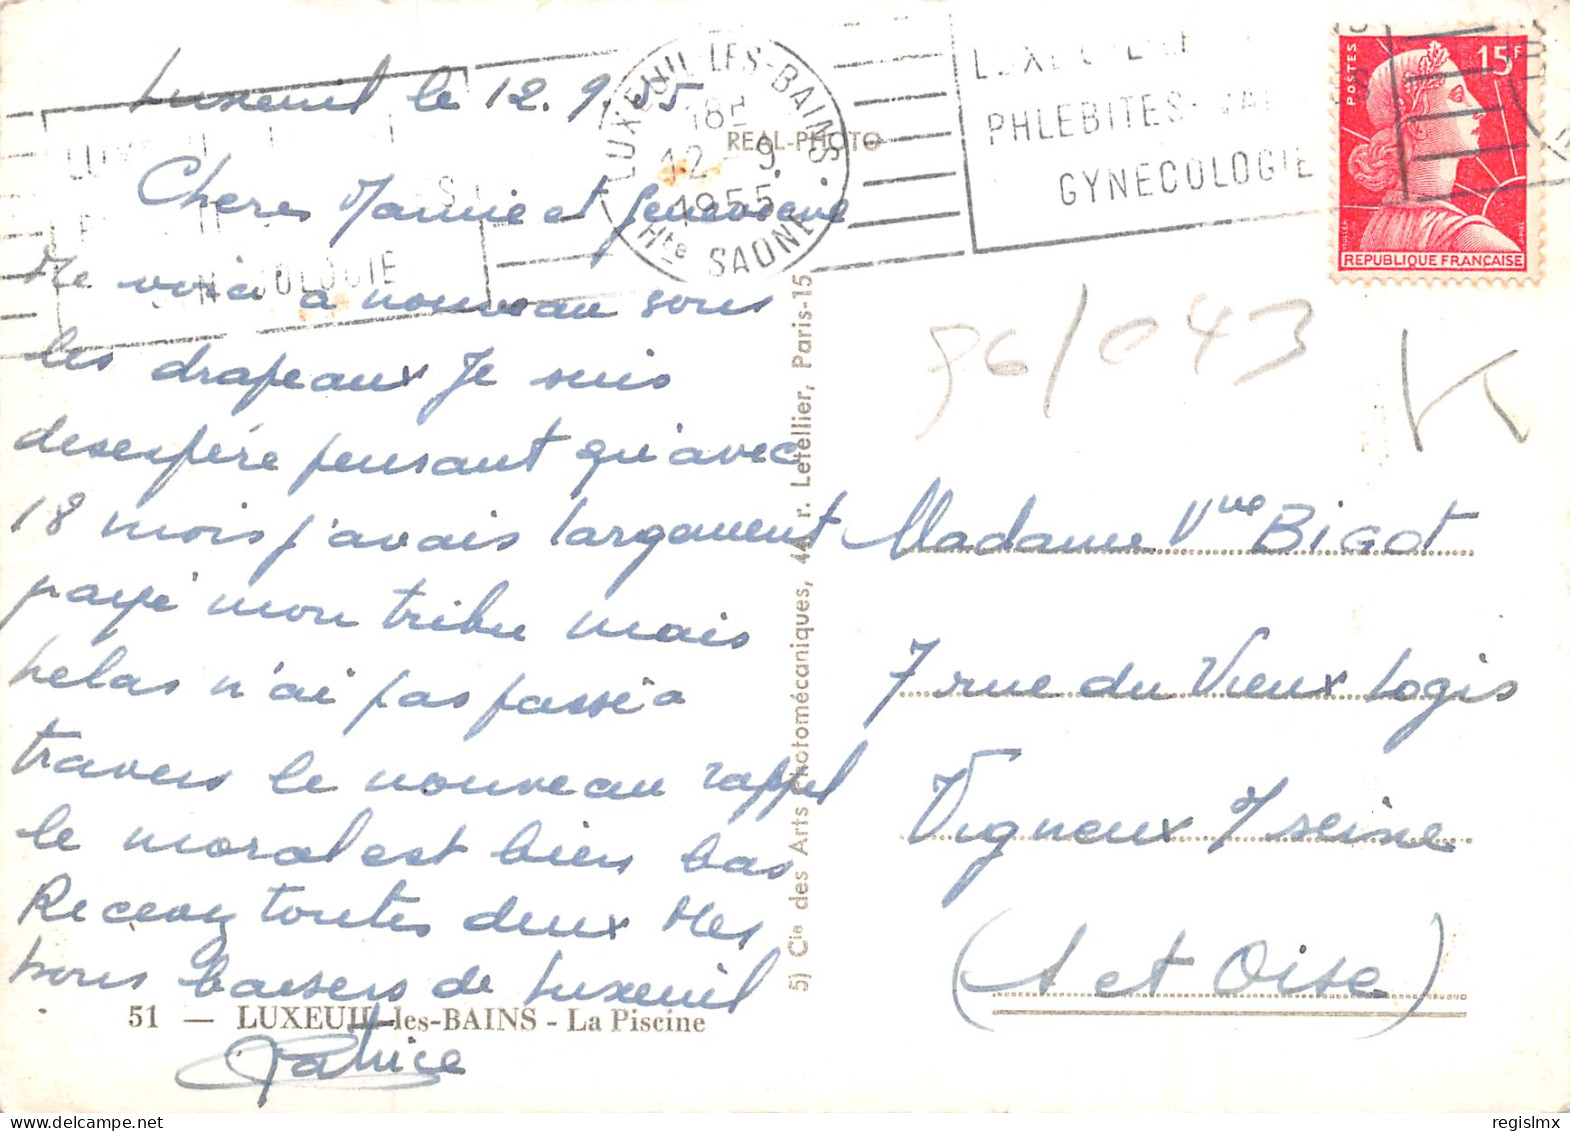 Luxeuil le 12.9.55
Cheres Mamie et Genevieve
Me voici à nouveau sous
les drapeaux Je suis
desespére pensant qu'avec
18 mois j'avais largement
payé mon tribu mais
helas n'ai pas passé a
travers le nouveau rappel
le moral est bien bas
Recevez toutes deux mes
bons baisers de Luxeuil
Patrice
51 — LUXEUIL-les-BAINS - La Piscine
REAL-PHOTO
5) Cie des Arts Photomécaniques, 44, r. Letellier, Paris-15
LUXEUIL-LES-BAINS
18H
12 - 9
1955
Hte SAONE
PHLEBITES
GYNECOLOGIE
POSTES
15F
REPUBLIQUE FRANCAISE
96/043
Madame Vve BIGOT
7 rue du Vieux Logis
Vigneux s/seine
(S et Oise)
regislmx